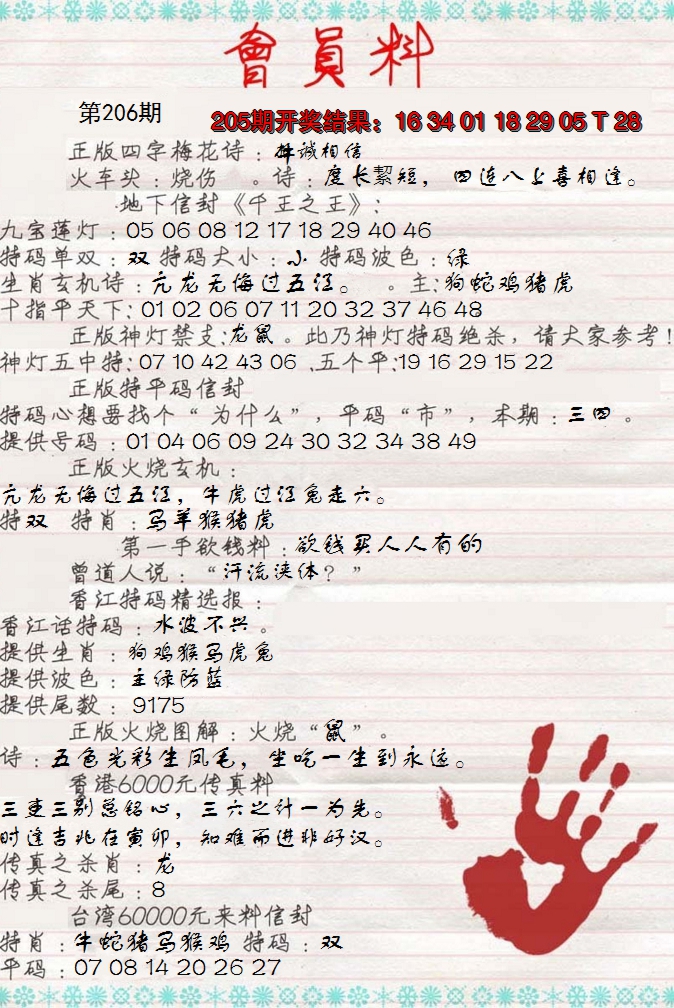 會員料
第206期
205期开奖结果：16 34 01 18 29 05 T 28
正版四字梅花诗：诚相信
火车头：烧伤 。诗：度长絜短，四连八上喜相逢。
地下信封《千王之王》：
九宝莲灯：05 06 08 12 17 18 29 40 46
特码单双：双 特码大小：小 特码波色：绿
生肖玄机诗：亢龙无悔过五江。 。主：狗蛇鸡猪虎
十指平天下：01 02 06 07 11 20 32 37 46 48
正版神灯禁支：龙鼠。此乃神灯特码绝杀，请大家参考！
神灯五中特：07 10 42 43 06 .五个平：19 16 29 15 22
正版特平码信封
特码心想要找个“为什么”，平码“市”，本期：三四。
提供号码：01 04 06 09 24 30 32 34 38 49
正版火烧玄机：
亢龙无悔过五江，牛虎过江兔走六。
特双 特肖：马羊猴猪虎
第一手欲钱料：欲钱买人人有的
曾道人说：“汗流浃体？”
香江特码精选报：
香江话特码：水波不兴。
提供生肖：狗鸡猴马虎兔
提供波色：主绿防蓝
提供尾数：9175
正版火烧图解：火烧“鼠”。
诗：五色光彩生凤毛，坐吃一生到永远。
香港6000元传真料
三更三别总铭心，三六之计一为先。
时逢吉兆在寅卯，知难而进非好汉。
传真之杀肖：龙
传真之杀尾：8
台湾60000元来料信封
特肖：牛蛇猪马猴鸡 特码：双
平码：07 08 14 20 26 27